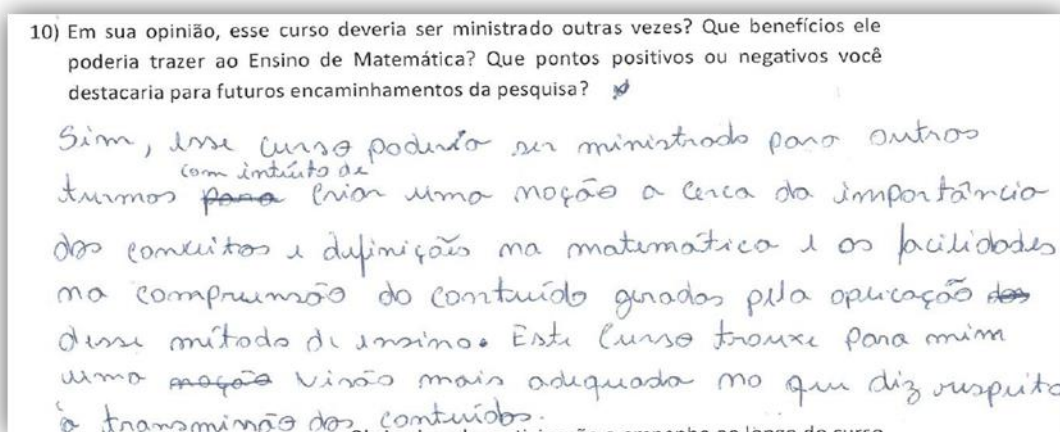 10) Em sua opinião, esse curso deveria ser ministrado outras vezes? Que benefícios ele
poderia trazer ao Ensino de Matemática? Que pontos positivos ou negativos você
destacaria para futuros encaminhamentos da pesquisa?
Sim, esse curso poderia ser ministrado para outras
com intúito de
turmas para criar uma noção a cerca da importância
dos conceitos e definições na matemática e as facilidades
na compreensão do conteúdo geradas pela aplicação dos
desse método de ensino. Este curso trouxe para mim
uma noção visão mais adequada no que diz respeito
à transmissão dos conteúdos.